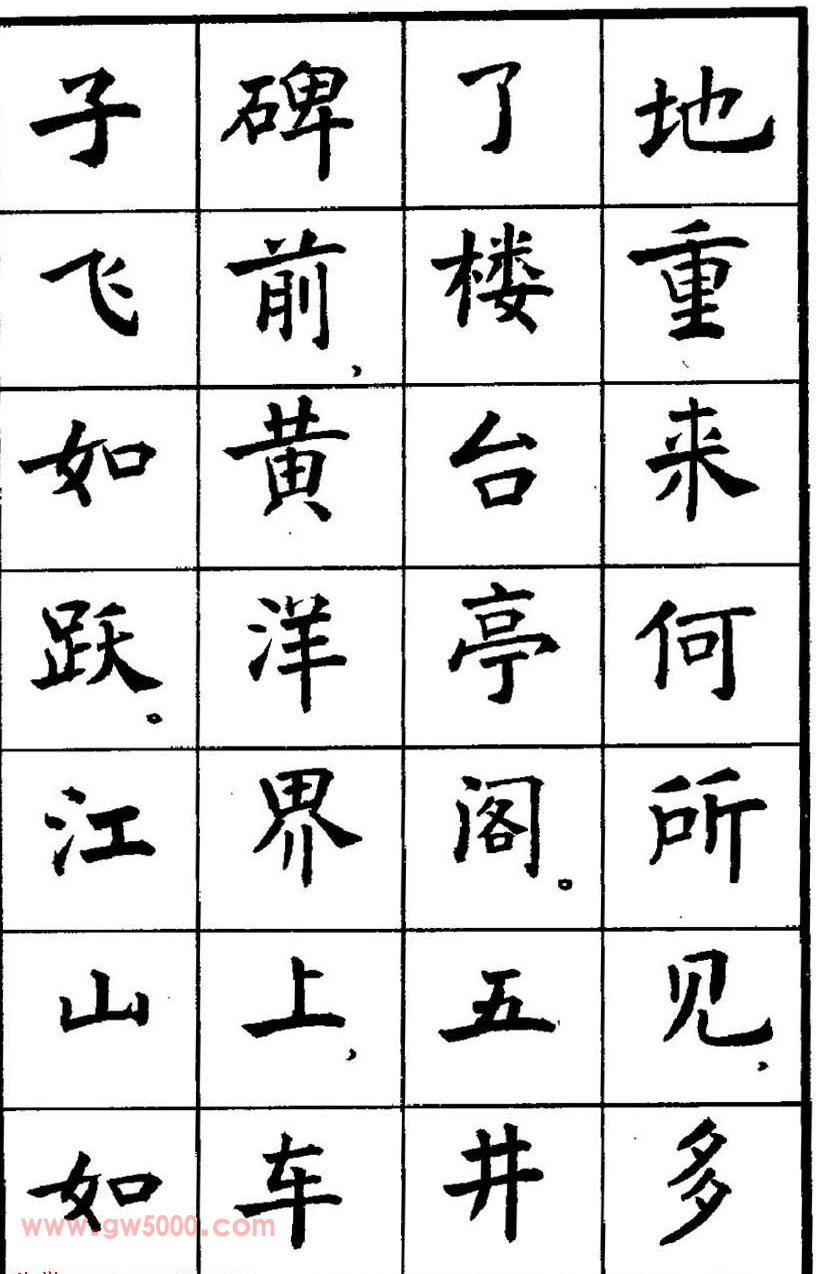 地重来何所见，多
了楼台亭阁。五井
碑前，黄洋界上，车
子飞如跃。江山如
www.gw5000.com